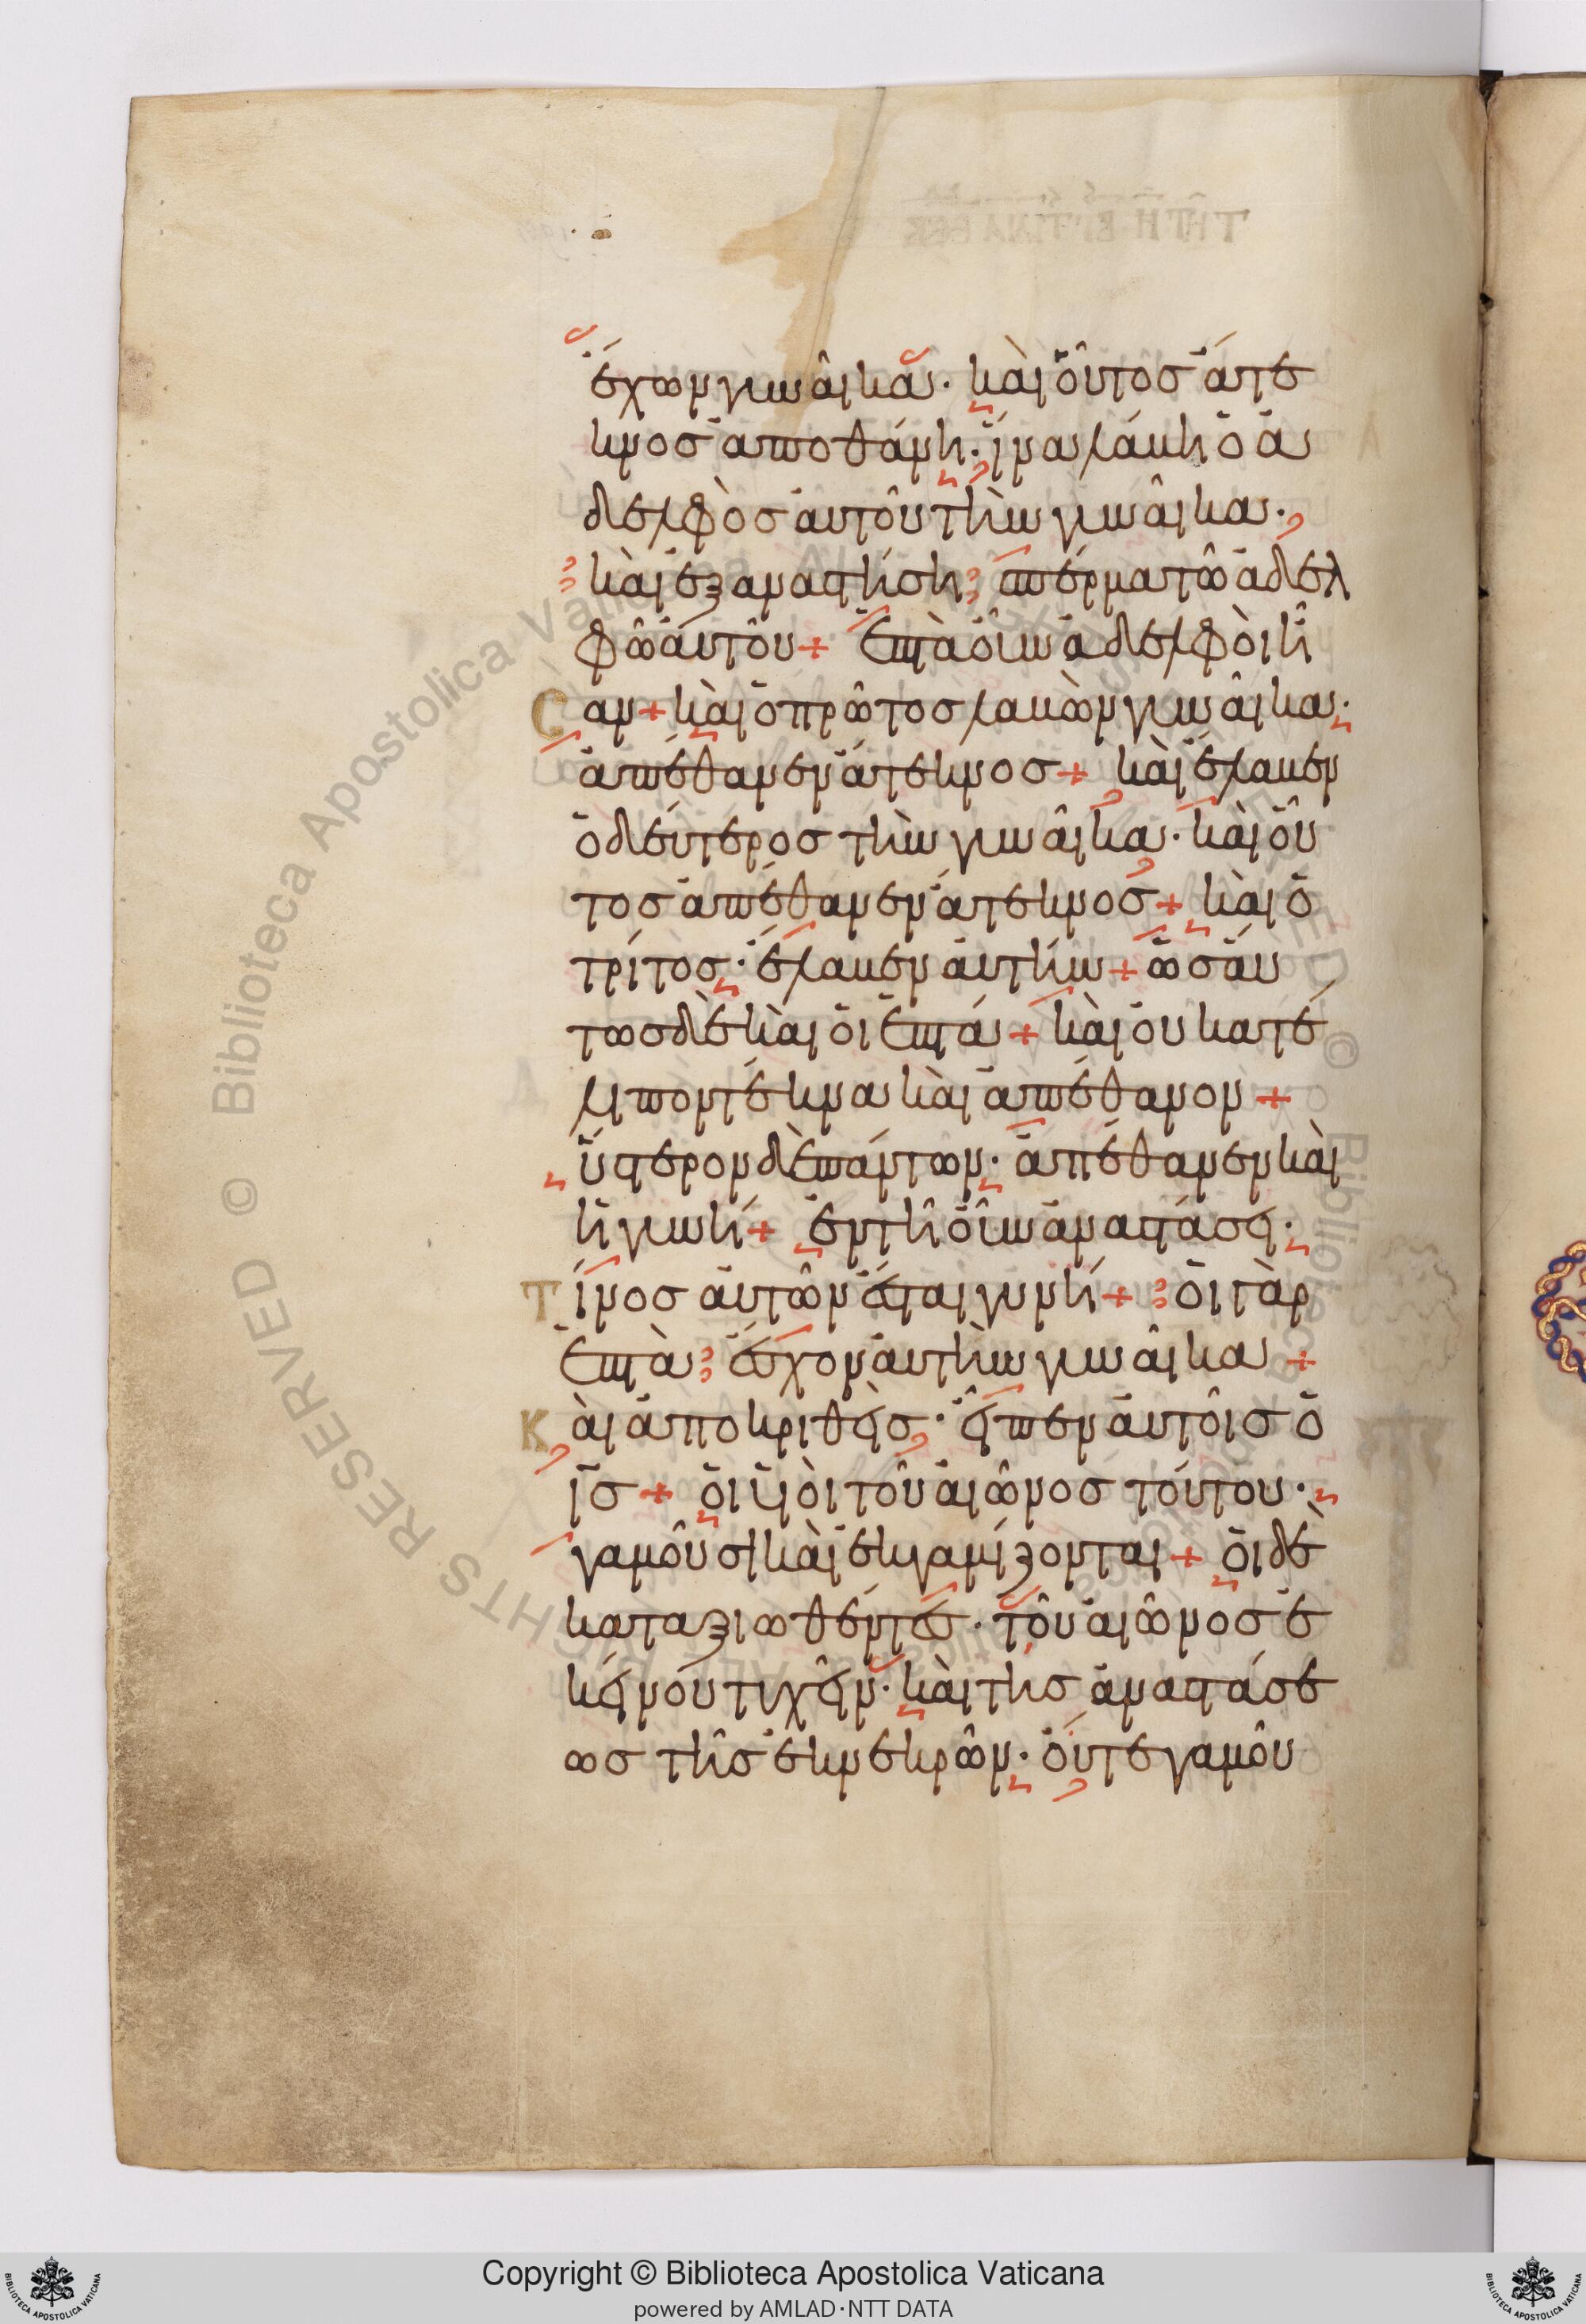 ἔχων γυναῖκα· καὶ οὗτος ἄτε
κνος ἀποθάνῃ· ἵνα λάβῃ ὁ ἀ
δελφὸς αὐτοῦ τὴν γυναῖκα·
καὶ ἐξαναστήσῃ σπέρμα τῶ ἀδελ
φῶ αὐτοῦ + ἑπτὰ οὖν ἀδελφοὶ ἦ
σαν + καὶ ὁ πρῶτος λαβὼν γυναῖκα·
ἀπέθανεν ἄτεκνος + καὶ ἔλαβεν
ὁ δεύτερος τὴν γυναῖκα· καὶ οὗ
τος ἀπέθανεν ἄτεκνος + καὶ ὁ
τρίτος· ἔλαβεν αὐτήν + ὡσαύ
τως δὲ καὶ οἱ ἑπτά + καὶ οὐ κατέ
λιπον τέκνα καὶ ἀπέθανον +
ὕστερον δὲ πάντων· ἀπέθανεν καὶ
ἡ γυνή + ἐν τῆ οὖν ἀναστάσει·
Τίνος αὐτῶν ἔσται γυνή + οἱ γὰρ
ἑπτὰ ἔσχον αὐτὴν γυναῖκα +
Καὶ ἀποκριθεὶς· εἶπεν αὐτοῖς ὁ
ις + οἱ υἱοὶ τοῦ αἰῶνος τούτου·
γαμοῦσι καὶ ἐκγαμίζονται + οἱ δὲ
καταξιωθέντες· τοῦ αἰῶνος ἐ
κείνου τυχεῖν· καὶ τῆς ἀναστάσε
ως τῆς ἐκ νεκρῶν· οὔτε γαμοῦ
Copyright © Biblioteca Apostolica Vaticana
powered by AMLAD·NTT DATA